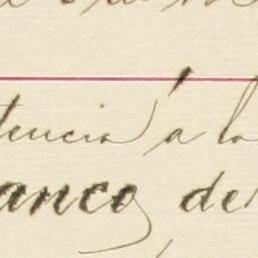 tencia á la
anco de